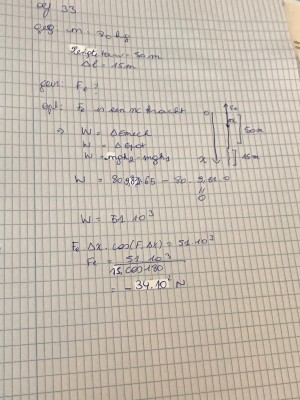 oef 33
geg: m: 80kg
lengte touw = 50m
Δl = 15m
gevr: Fe ?
opl: Fe is een nc kracht
⇒ W = ΔEmech
W = ΔEpot
W = mgh2 - mgh1
W = 80.9,81.65 - 80.9,81.0
0
W = 51.10³
Fe.Δx.cos(F,Δx) = 51.10³
Fe = 51.10³
15.cos180
= -34.10² N
0
Fe
x
50m
15m